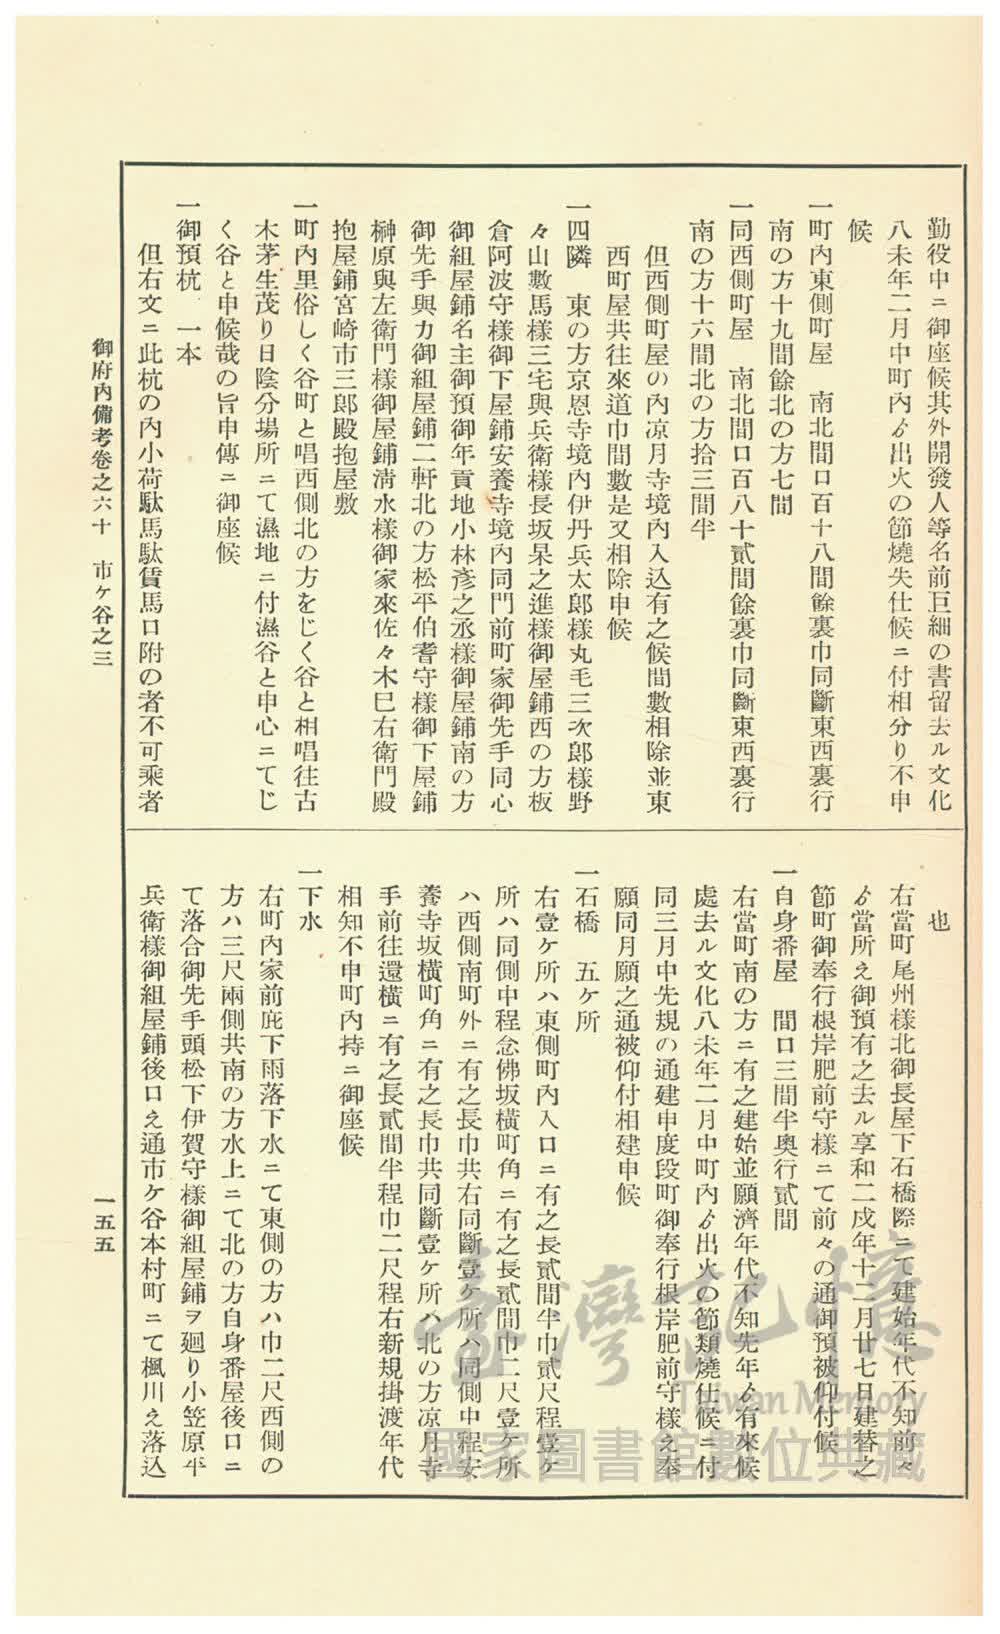 勤役中ニ御座候其外開發人等名前巨細の書留去ル文化
八未年二月中町內ゟ出火の節燒失仕候ニ付相分り不申
候
一町內東側町屋　南北間口百十八間餘裏巾同斷東西裏行
南の方十九間餘北の方七間
一同西側町屋　南北間口百八十貳間餘裏巾同斷東西裏行
南の方十六間北の方拾三間半
但西側町屋の內凉月寺境內入込有之候間數相除並東
西町屋共往來道巾間數是又相除申候
一四隣　東の方京恩寺境內伊丹兵太郎樣丸毛三次郎樣野
々山數馬樣三宅與兵衛樣長坂杲之進樣御屋鋪西の方板
倉阿波守樣御下屋鋪安養寺境內同門前町家御先手同心
御組屋鋪名主御預御年貢地小林彥之丞樣御屋鋪南の方
御先手與力御組屋鋪二軒北の方松平伯耆守樣御下屋鋪
榊原與左衛門樣御屋鋪淸水樣御家來佐々木巳右衛門殿
抱屋鋪宮崎市三郎殿抱屋敷
一町內里俗しく谷町と唱西側北の方をじく谷と相唱往古
木茅生茂り日陰分場所ニて濕地ニ付濕谷と申心ニてじ
く谷と申候哉の旨申傳ニ御座候
一御預杭　一本
但右文ニ此杭の內小荷駄馬駄賃馬口附の者不可乘者
也
右當町尾州樣北御長屋下石橋際ニて建始年代不知前々
ゟ當所え御預有之去ル享和二戍年十二月廿七日建替之
節町御奉行根岸肥前守樣ニて前々の通御預被仰付候
一自身番屋　間口三間半奧行貳間
右當町南の方ニ有之建始並願濟年代不知先年ゟ有來候
處去ル文化八未年二月中町內ゟ出火の節類燒仕候ニ付
同三月中先規の通建申度段町御奉行根岸肥前守樣え奉
願同月願之通被仰付相建申候
一石橋　五ケ所
右壹ケ所ハ東側町內入口ニ有之長貳間半巾貳尺程壹ケ
所ハ同側中程念佛坂橫町角ニ有之長貳間巾二尺壹ケ所
ハ西側南町外ニ有之長巾共右同斷壹ケ所ハ同側中程安
養寺坂橫町角ニ有之長巾共同斷壹ケ所ハ北の方凉月寺
手前往還橫ニ有之長貳間半程巾二尺程右新規掛渡年代
相知不申町內持ニ御座候
一下水
右町內家前庇下雨落下水ニて東側の方ハ巾二尺西側の
方ハ三尺兩側共南の方水上ニて北の方自身番屋後口ニ
て落合御先手頭松下伊賀守樣御組屋鋪ヲ廻り小笠原平
兵衛樣御組屋鋪後口え通市ケ谷本村町ニて楓川え落込
御府內備考卷之六十　市ケ谷之三
一五五
臺灣記憶
Taiwan Memory
國家圖書館數位典藏